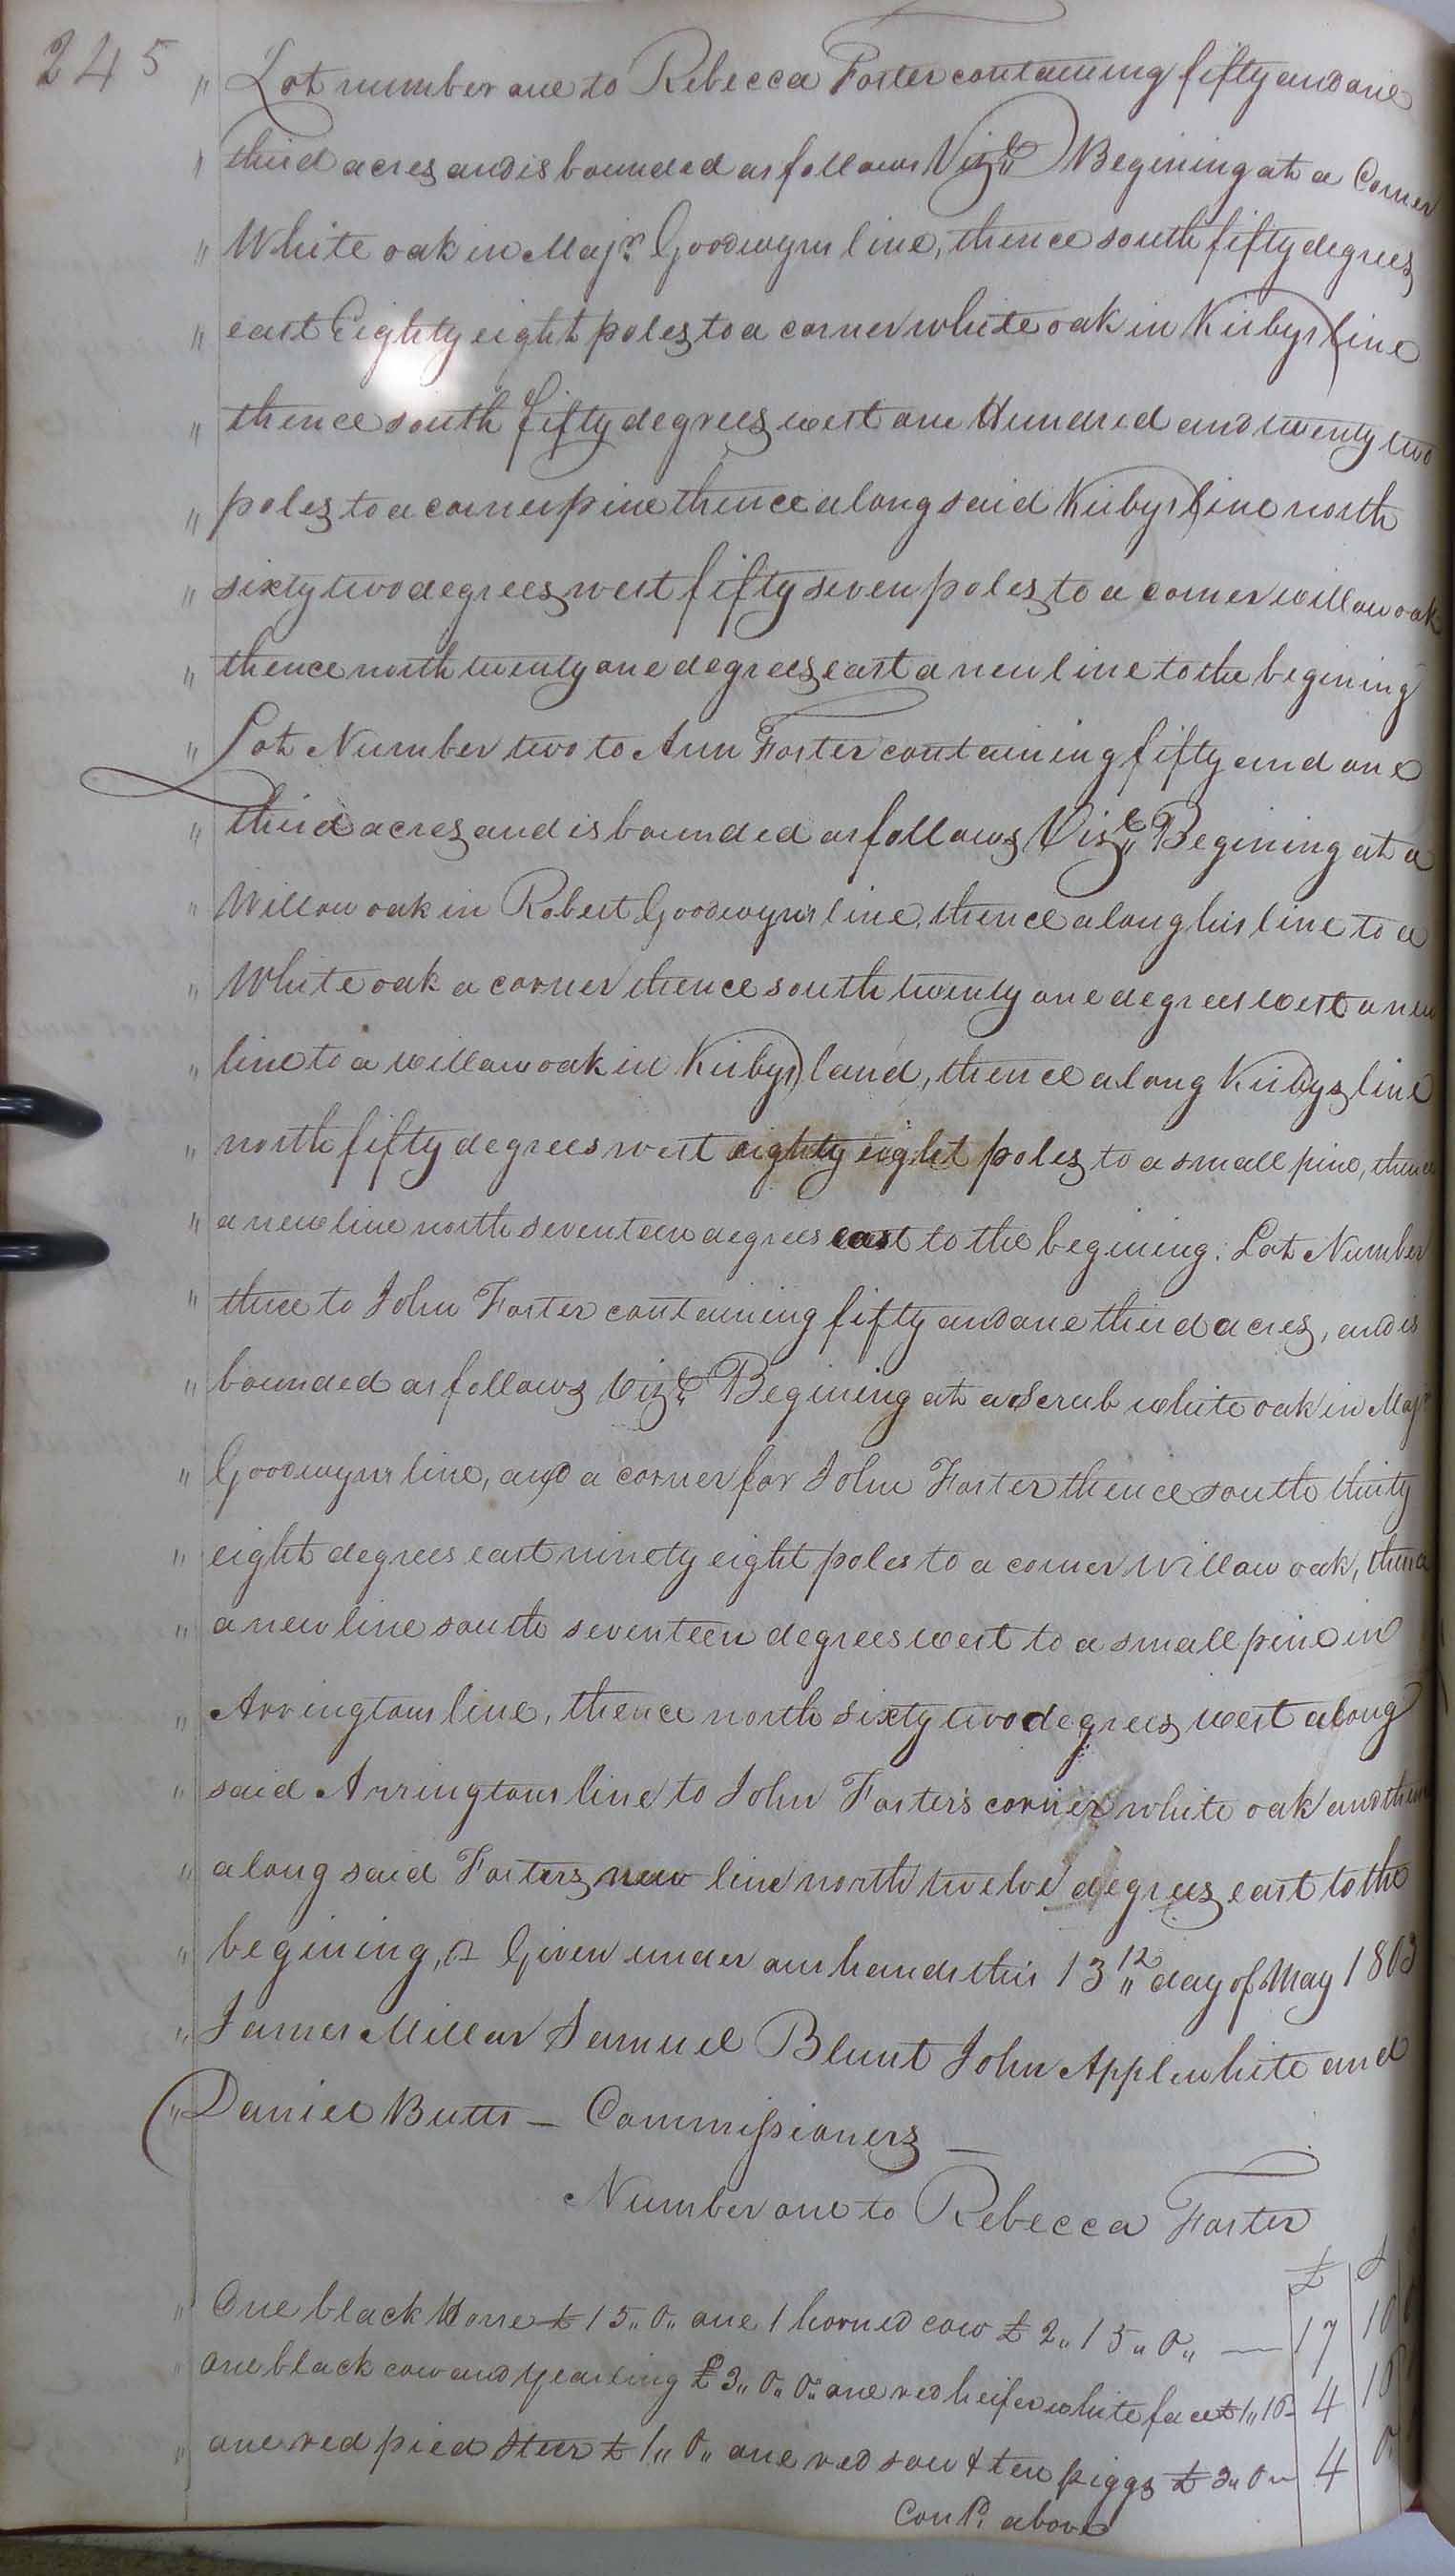 245
" Lot number one to Rebecca Foster containing fifty and one
" third acres and is bounded as follows Vizt. Begining at a Corner
" White oak in Majr. Goodwyns line, thence south fifty degrees
" east Eighty eight poles to a corner white oak in Kirbys line
" thence south fifty degrees west one Hundred and twenty two
" poles to a corner pine thence along said Kirbys line north
" sixty two degrees west fifty seven poles to a corner willow oak
" thence north twenty one degrees east a new line to the begining
" Lot Number two to Ann Foster containing fifty and one
" third acres and is bounded as follows Vizt. Begining at a
" Willow oak in Robert Goodwyn's line, thence along his line to a
" White oak a corner thence south twenty one degrees west a new
" line to a willow oak in Kirbys land, thence along Kirbys line
" north fifty degrees west eighty eight poles to a small pine, thence
" a new line north seventeen degrees east to the begining. Lot Number
" three to John Foster containing fifty and one third acres, and is
" bounded as follows Vizt. Begining at a Scrub white oak in Majr.
" Goodwyns line, and a corner for John Foster thence south thirty
" eight degrees east ninety eight poles to a corner Willow oak, thence
" a new line south seventeen degrees west to a small pine in
" Arringtons line, thence north sixty two degrees west along
" said Arringtons line to John Foster's corner white oak and thence
" along said Fosters new line north twelve degrees east to the
" begining, Given under our hands this 13th day of May 1803
" James Millar Samuel Blunt John Applewhite and
" Daniel Butts — Commissioners —
Number one to Rebecca Foster
£ s
" One black Horse £ 15,, 0,, one 1 horned cow £ 2,, 15,, 0,, — 17 10
" one black cow and yearling £ 3,, 0,, 0,, one red heifer white face £ 1,, 10 4 10
" one red pied Steer £ 1,, 0,, one red sow & ten piggs £ 3,, 0 — 4 0
Cond. above